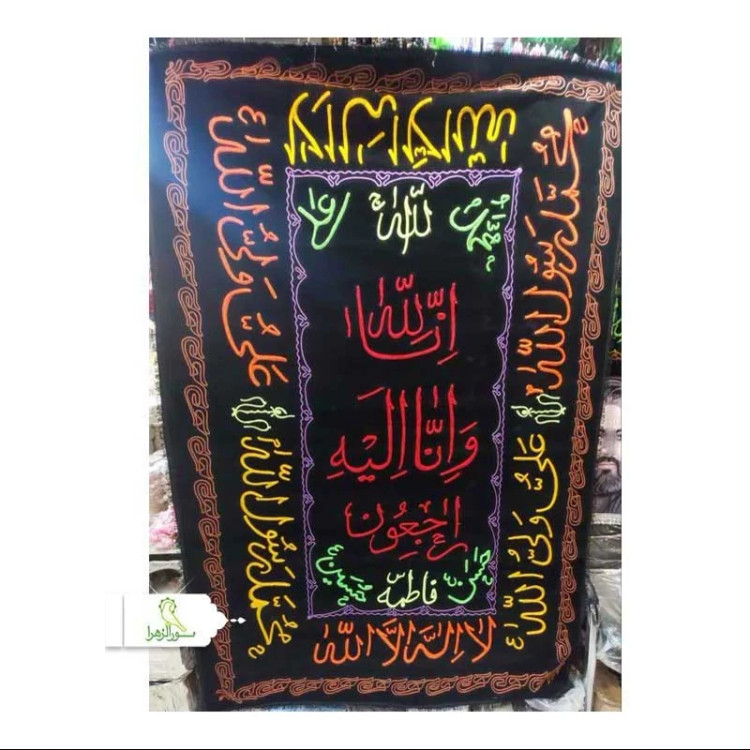 لا اله الا الله
محمد رسول الله
علی ولی الله
علی ولی الله
محمد رسول الله
الله
محمد
علی
انا لله
وانا الیه
راجعون
حسن
فاطمه
حسین
لا اله الا الله
سورالزهرا